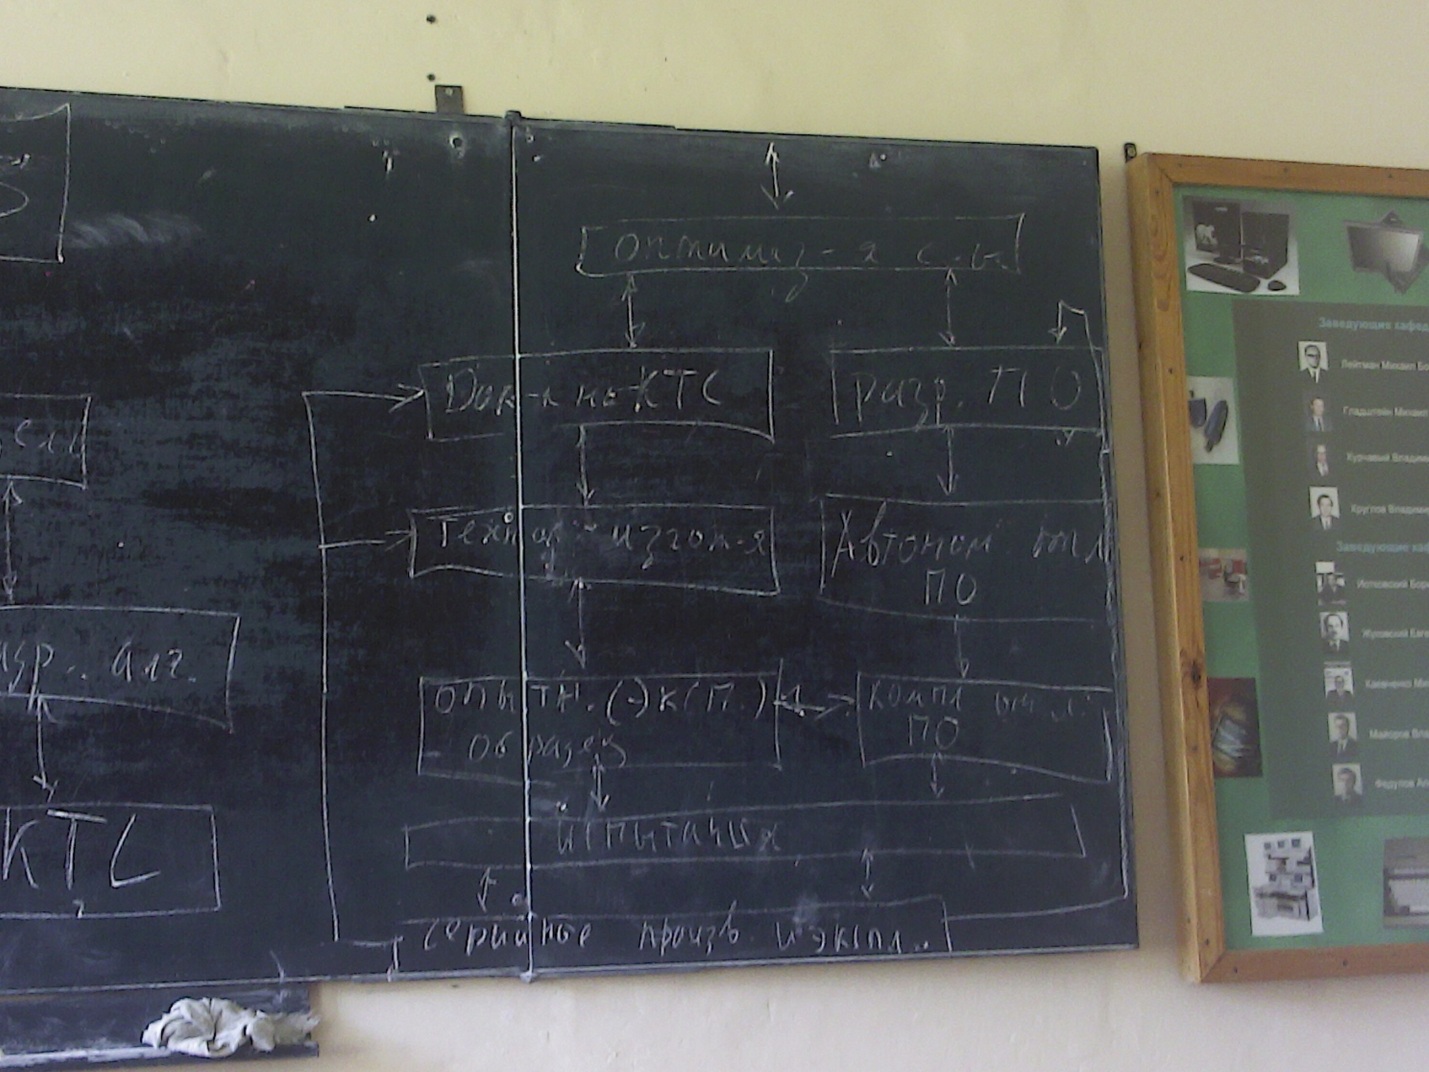 оптимиз-я с-ы
Док-я на КТС
разр. ПО
Технол. изгот-я
Автоном. отл
ПО
опытн. (эксп.)
образец
компл. отл.
ПО
испытания
серийное произв. и экспл.
азр. алг.
КТС
Заведующие кафед
Лейтман Михаил Бо
Гладштейн Михаил
Курчавый Владими
Круглов Владими
Заведующие каф
Иотковский Бор
Жуковский Евге
Майоров Вла
Федулов Ал